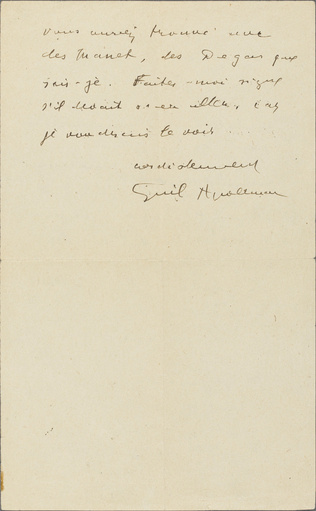 vous auriez trouvé
des Manet, des Degas que
sais-je. Faites-moi signe
s'il devait s'en aller, car
je voudrais le voir
cordialement
Guil Apollinaire